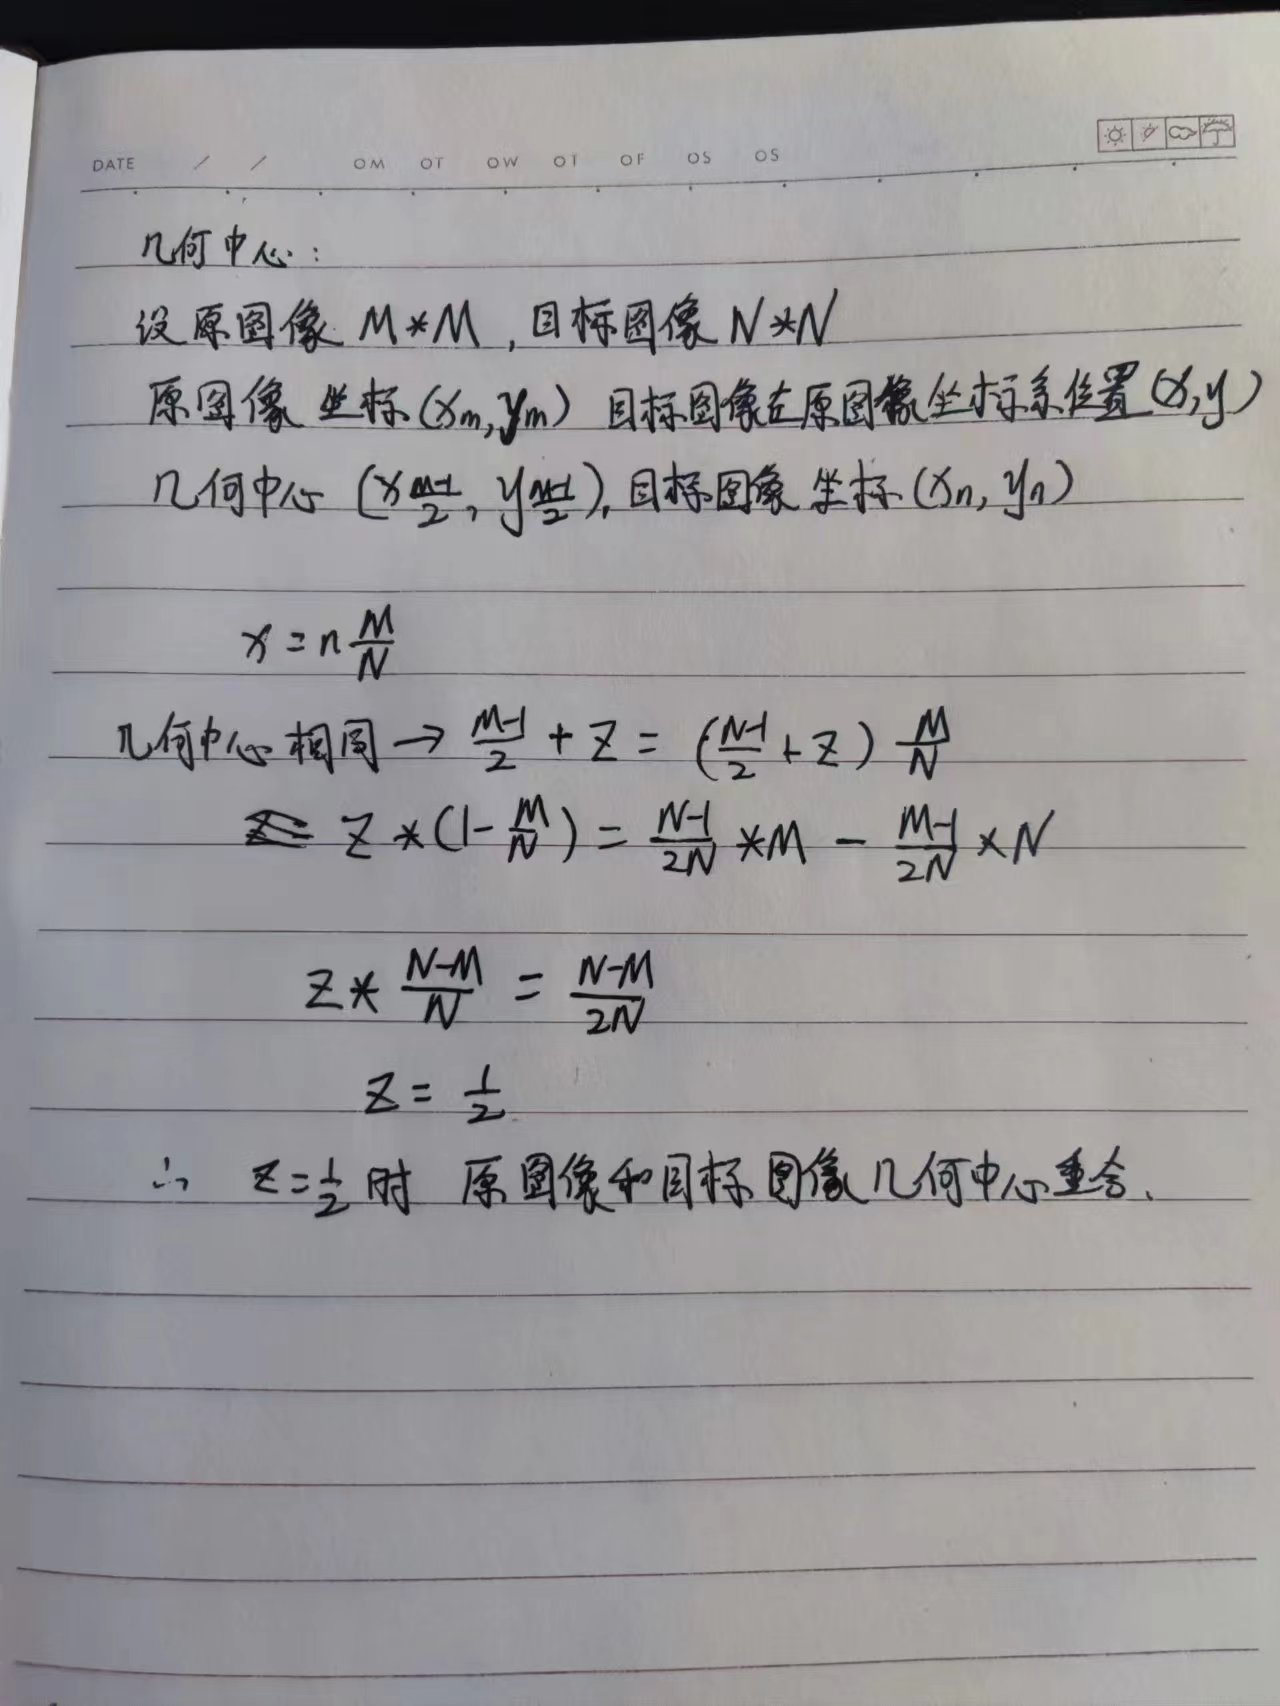 DATE / / OM OT OW OT OF OS OS
几何中心:
设原图像 M*M,目标图像 N*N
原图像 坐标(xm,ym) 目标图像在原图像坐标系位置(x,y)
几何中心 (x M-1/2, y M-1/2),目标图像 坐标(xn,yn)
x = n M/N
几何中心相同 → M-1/2 + Z = (N-1/2 + Z) M/N
Z *(1- M/N) = N-1/2N *M - M-1/2N ×N
Z* N-M/N = N-M/2N
Z = 1/2
∴ Z=1/2 时 原图像和目标图像几何中心重合.